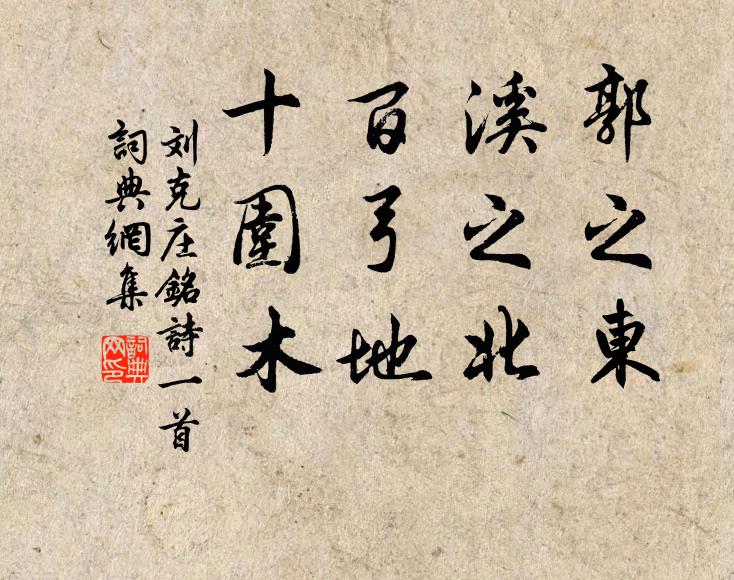 郭之東
溪之北
百弓地
十圍木
刘克庄銘詩一首
詞典網集
詞典
网印